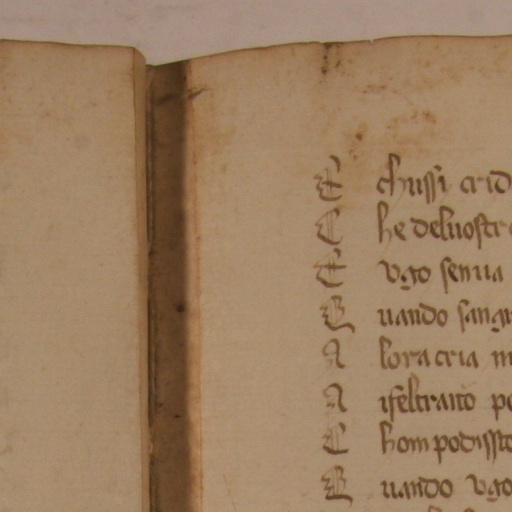 E chussi crid
C he deluostr
E vgo senua
Q uando sangu
A lora cria m
A ifeltrano po
C hom podissto
Q uando vgo